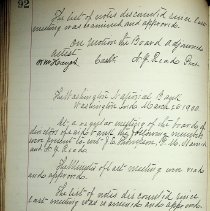 92
The list of notes discounted since last
meeting was examined and approved.
on motion the Board adjourned
attest
Cash. A. J. Read Pres.
The Washington National Bank
Washington Ind March 16 1900
At a regular meeting of the board of
directors of said bank the following members
were present to wit
and A. J. Read
The Minutes of last meeting were read
and approved.
The list of notes discounted since
last meeting was examined and approved.